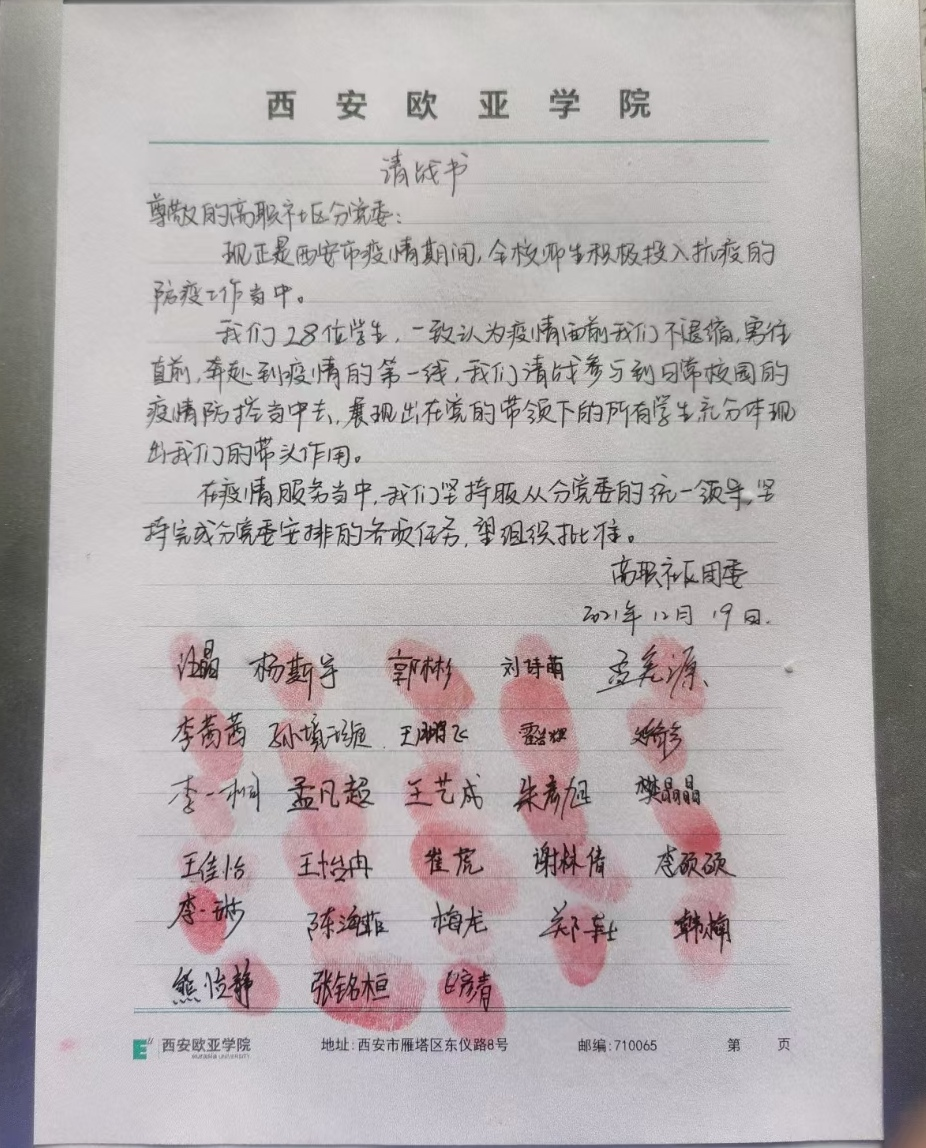 西安欧亚学院
请战书
尊敬的高职社区分党委：
现正是西安市疫情期间，全校师生积极投入抗疫的
防疫工作当中。
我们28位学生，一致认为疫情面前我们不退缩，勇往
直前，奔赴到疫情的第一线，我们请战参与到日常校园的
疫情防控当中去，展现出在党的带领下的所有学生充分体现
出我们的带头作用。
在疫情服务当中，我们坚持服从分党委的统一领导，坚
持完成分党委安排的各项任务，望组织批准。
高职社区团委
2021年12月19日.
汪晶 杨斯宇 郭彬彬 刘诗萌
李茜茜 王鹏飞
李一桐 孟凡超 王艺成 朱彦旭 樊晶晶
王佳怡 王怡冉 崔虎 谢林倩 李硕硕
李一琳 陈海菲 梅龙 韩楠
熊怡静 张铭桓
西安欧亚学院 地址:西安市雁塔区东仪路8号 邮编:710065 第 页
EURASIA UNIVERSITY